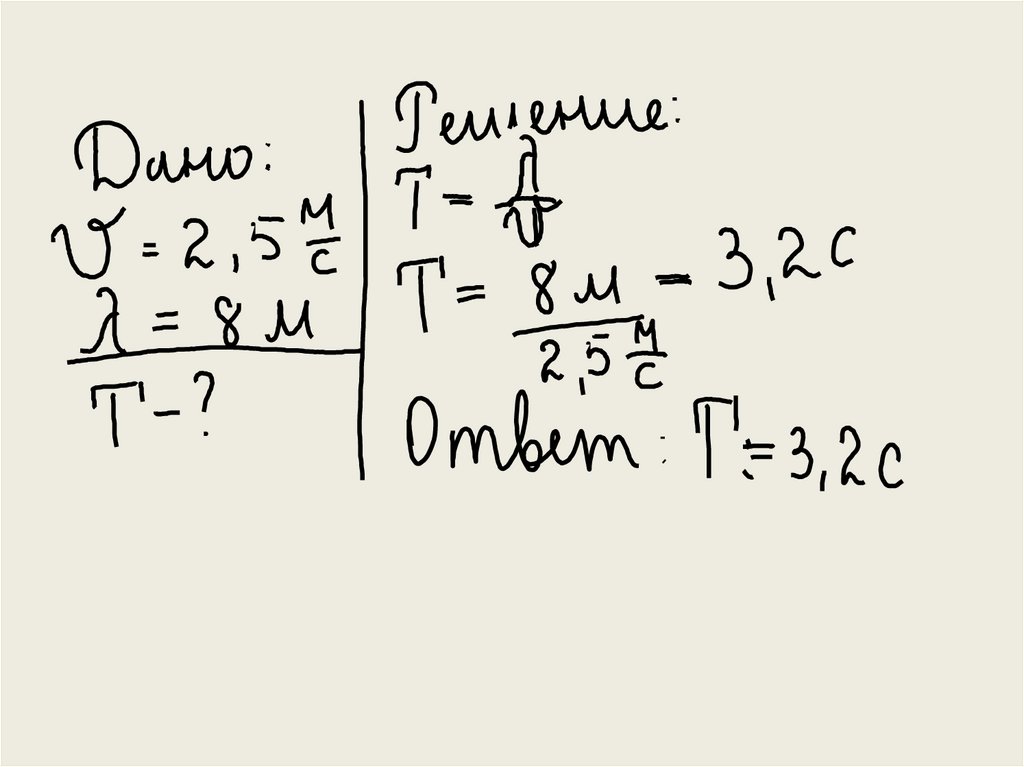 Дано:
υ = 2,5 м/с
λ = 8 м
T - ?
Решение:
T = λ/υ
T = 8 м / 2,5 м/с = 3,2 с
Ответ: T = 3,2 с